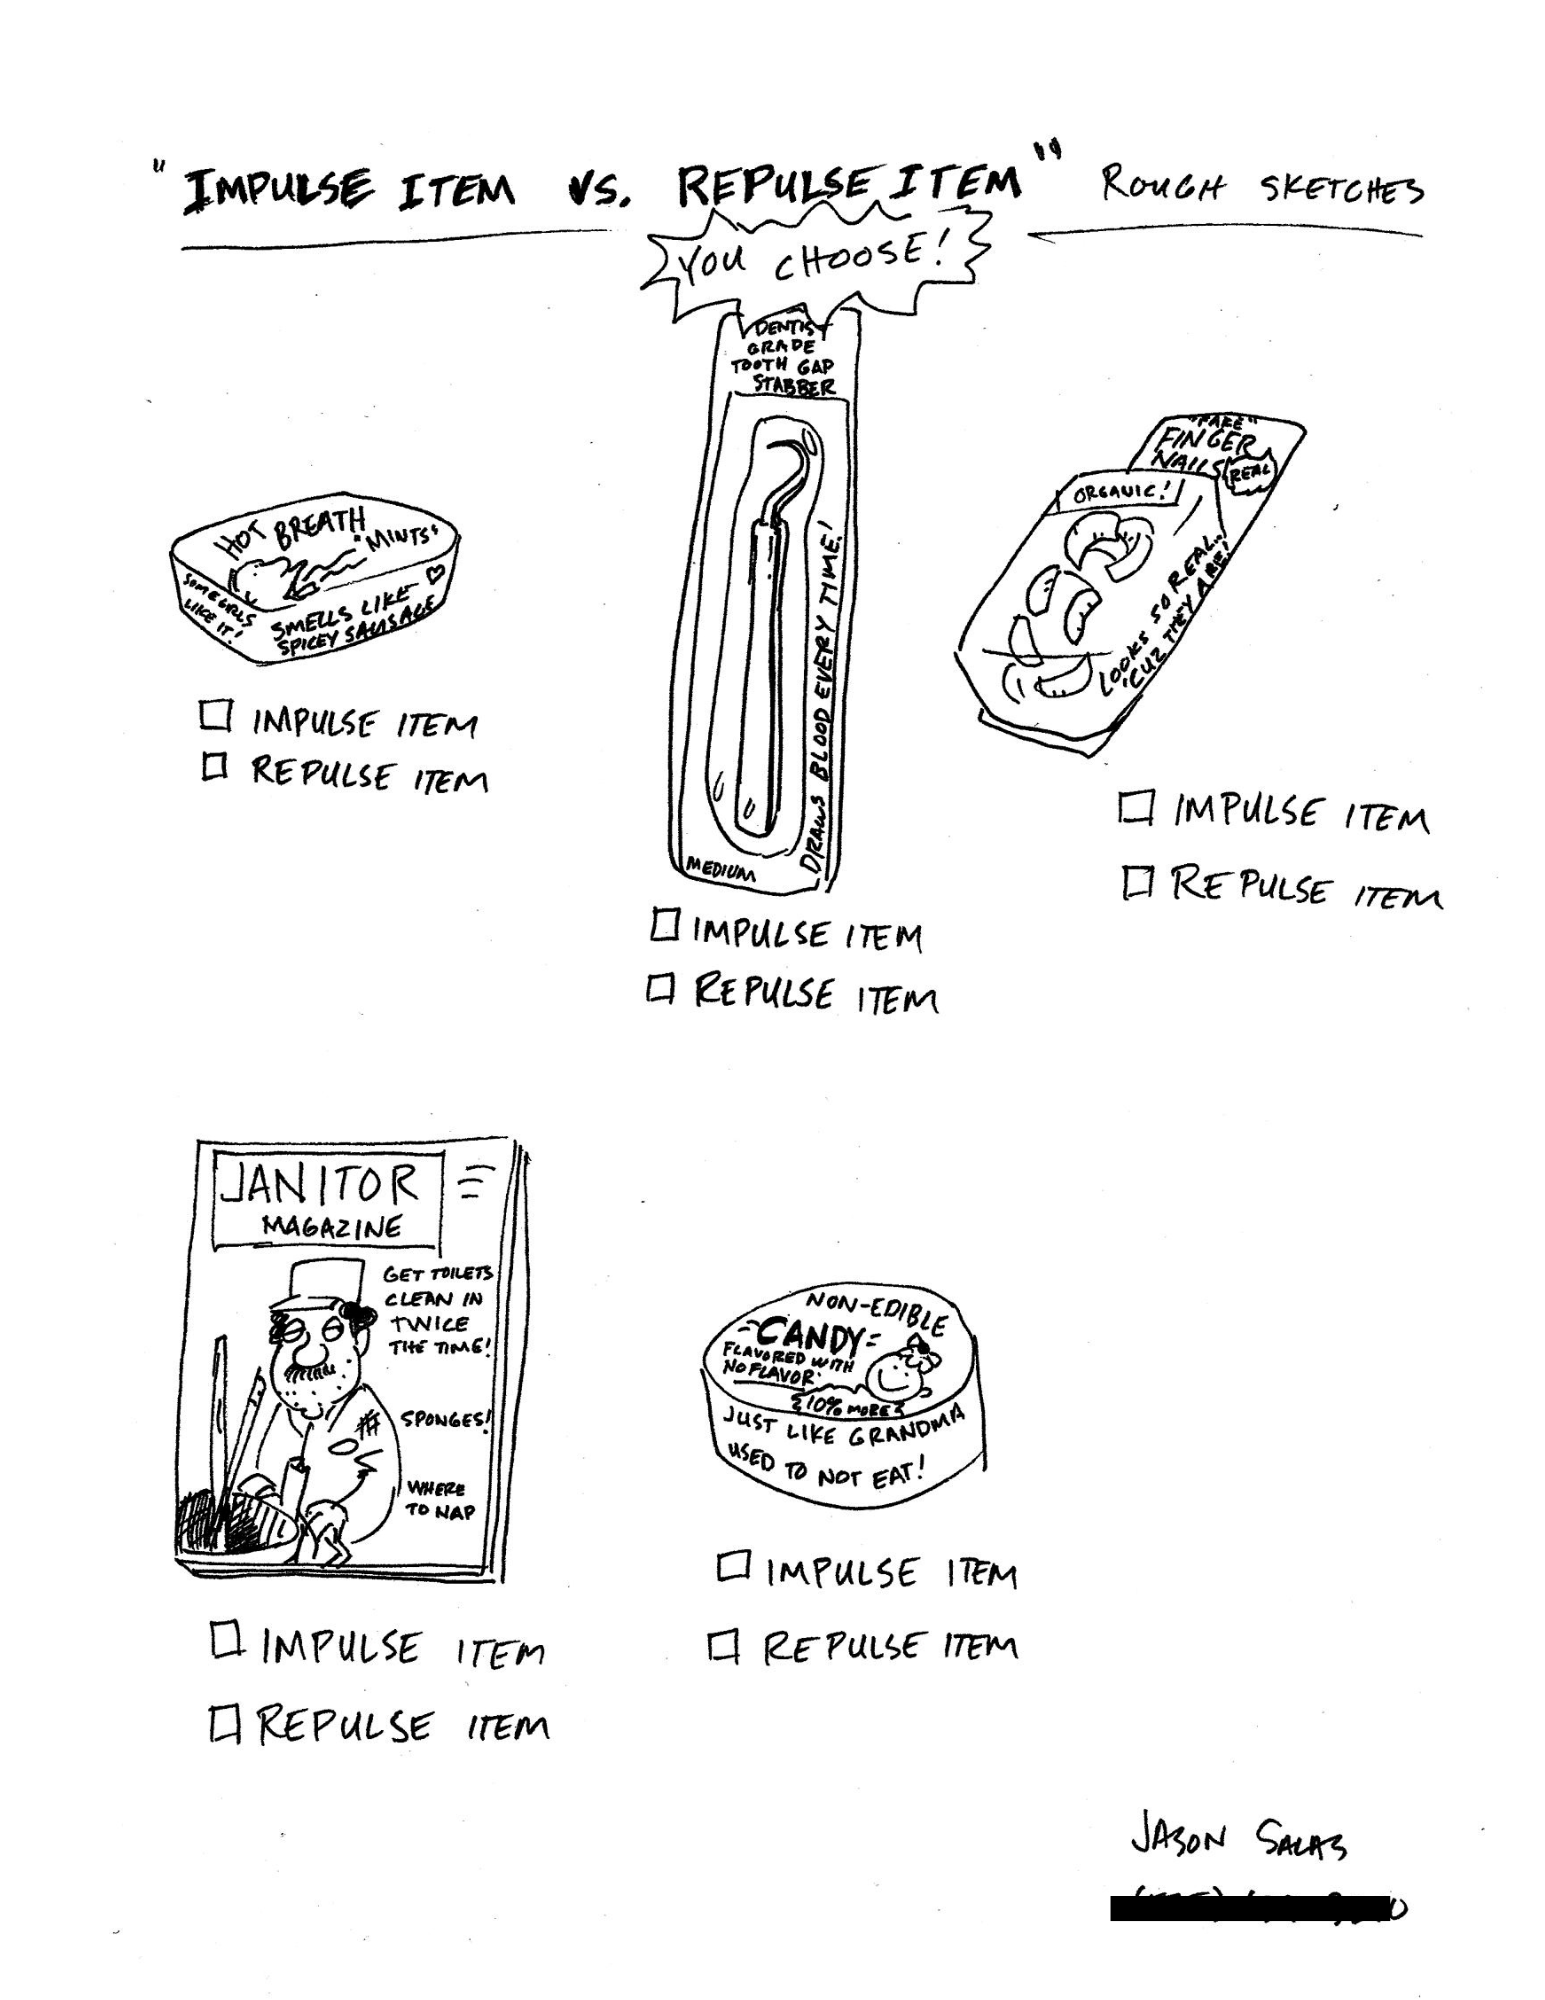 "IMPULSE ITEM VS. REPULSE ITEM" ROUGH SKETCHES
YOU CHOOSE!
HOT BREATH
"MINTS"
SOME GIRLS
LIKE IT!
SMELLS LIKE
SPICEY SAUSAGE
□ IMPULSE ITEM
□ REPULSE ITEM
DENTIST
GRADE
TOOTH GAP
STABBER
DRAWS BLOOD EVERY TIME!
MEDIUM
□ IMPULSE ITEM
□ REPULSE ITEM
"FAKE"
FINGER
NAILS
REAL
ORGANIC!
LOOKS SO REAL..
'CUZ THEY ARE!
□ IMPULSE ITEM
□ REPULSE ITEM
JANITOR
MAGAZINE
GET TOILETS
CLEAN IN
TWICE
THE TIME!
SPONGES!
WHERE
TO NAP
□ IMPULSE ITEM
□ REPULSE ITEM
NON-EDIBLE
CANDY
FLAVORED WITH
NO FLAVOR
10% MORE
JUST LIKE GRANDMA
USED TO NOT EAT!
□ IMPULSE ITEM
□ REPULSE ITEM
JASON SALAS